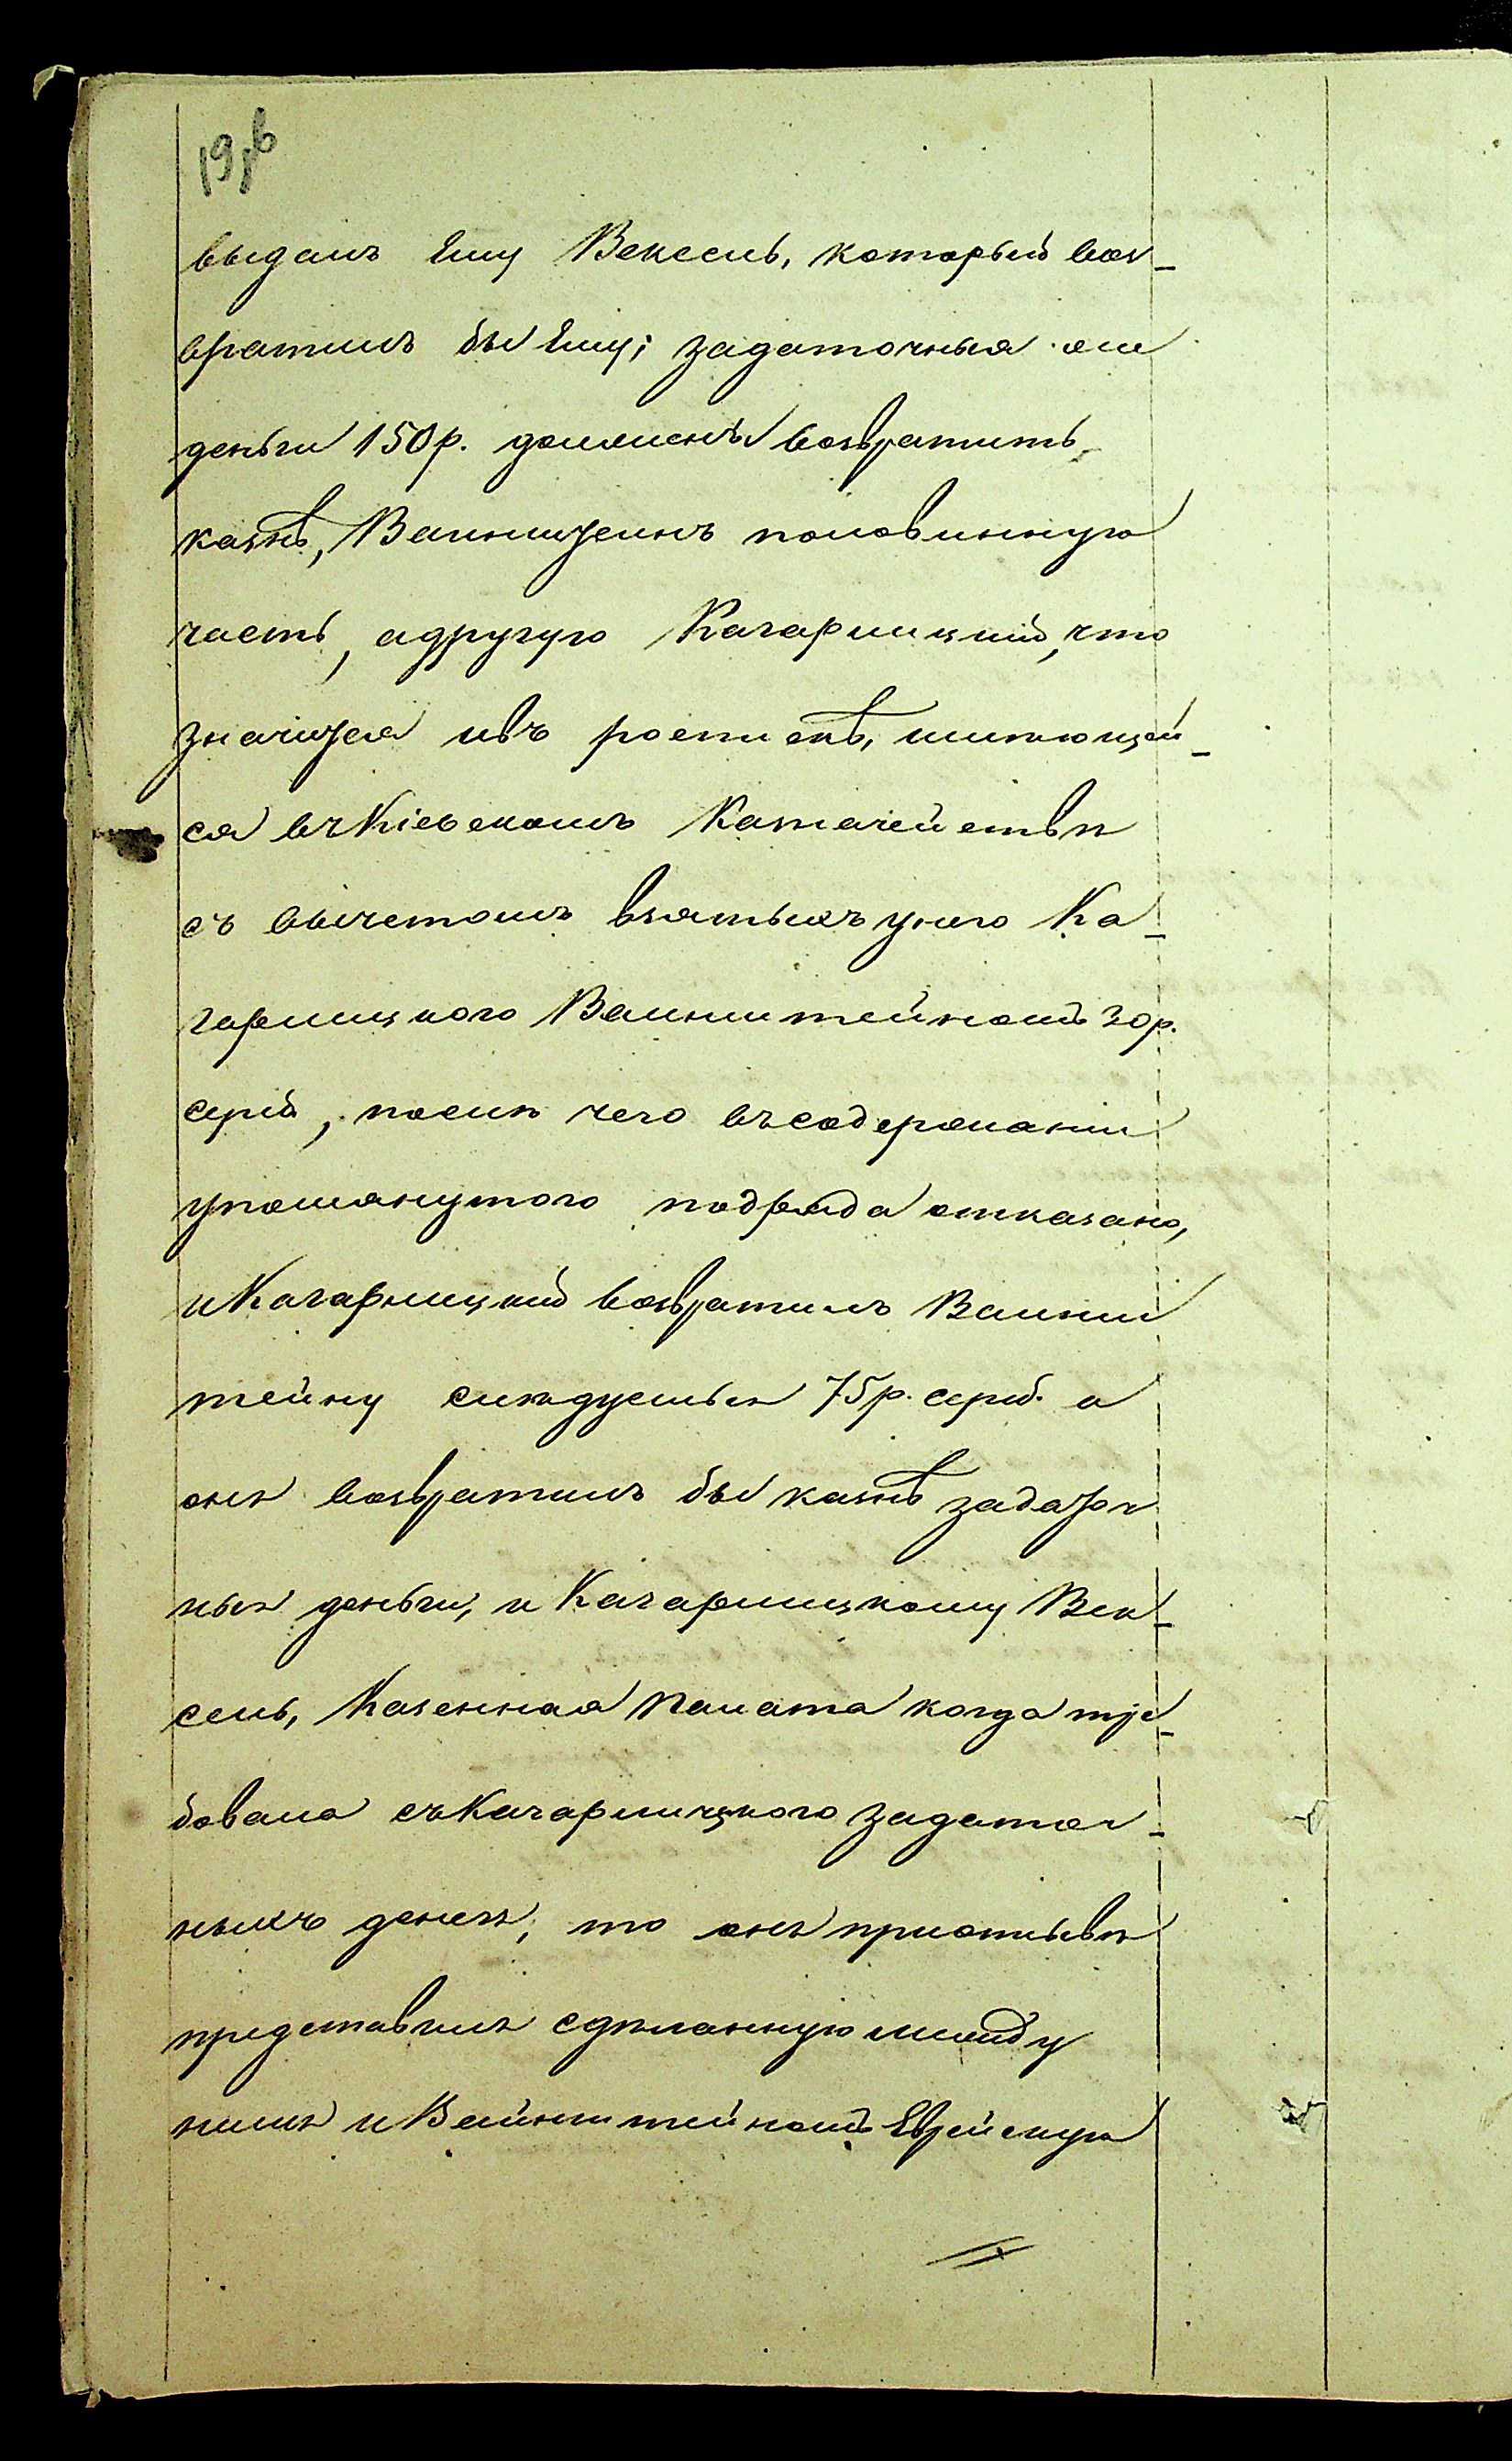 19об
выданъ Ему Вексель, который воз-
вратилъ бы Ему; задаточныя же
деньги 150 р. долженъ возвратить
казнѣ, Ваинштеинъ половинную
часть, а другую Кагарлицкий, что
значится изъ росписки, имѣющей-
ся въ Кіевскомъ Казначействѣ
съ вычетомъ взятыхъ у него Ка-
гарлицкого Ваинштейномъ 30 р.
сереб, послѣ чего въ содержаніи
упомянутого подряда отказано,
и Кагарлицкий возвратилъ Ваинш
тейну слѣдуемыя 75 р. сереб. а
онъ возвратилъ бы казнѣ задаточ
ныя деньги, и Кагарлицкому Век-
сель, Казенная Палата когда тре-
бовала съ Кагарлицкого задаточ-
ныхъ денегъ, то онъ при отзывѣ
представилъ сдѣланную между
нимъ и Вайнштейномъ Еврейскую